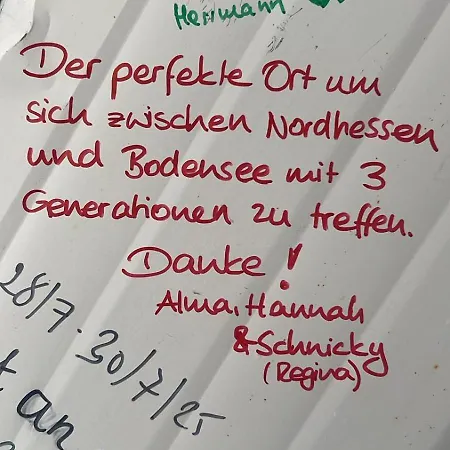 Herrmann
Der perfekte Ort um
sich zwischen Nordhessen
und Bodensee mit 3
Generationen zu treffen.
Danke!
Alma, Hannah
& Schnicky
(Regina)
28/7. 30/7/25
an